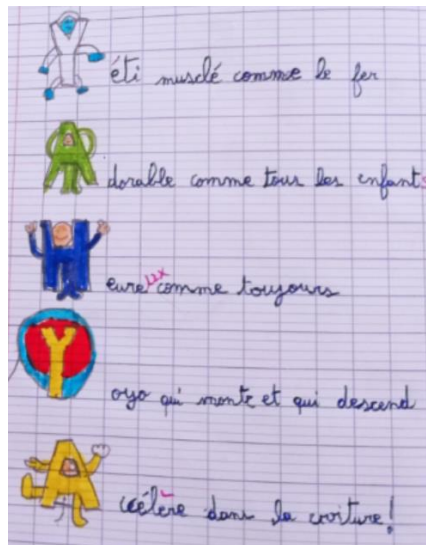 Yéti musclé comme le fer
Adorable comme tous les enfants
Heureux comme toujours
Yoyo qui monte et qui descend
Accélère dans la voiture!